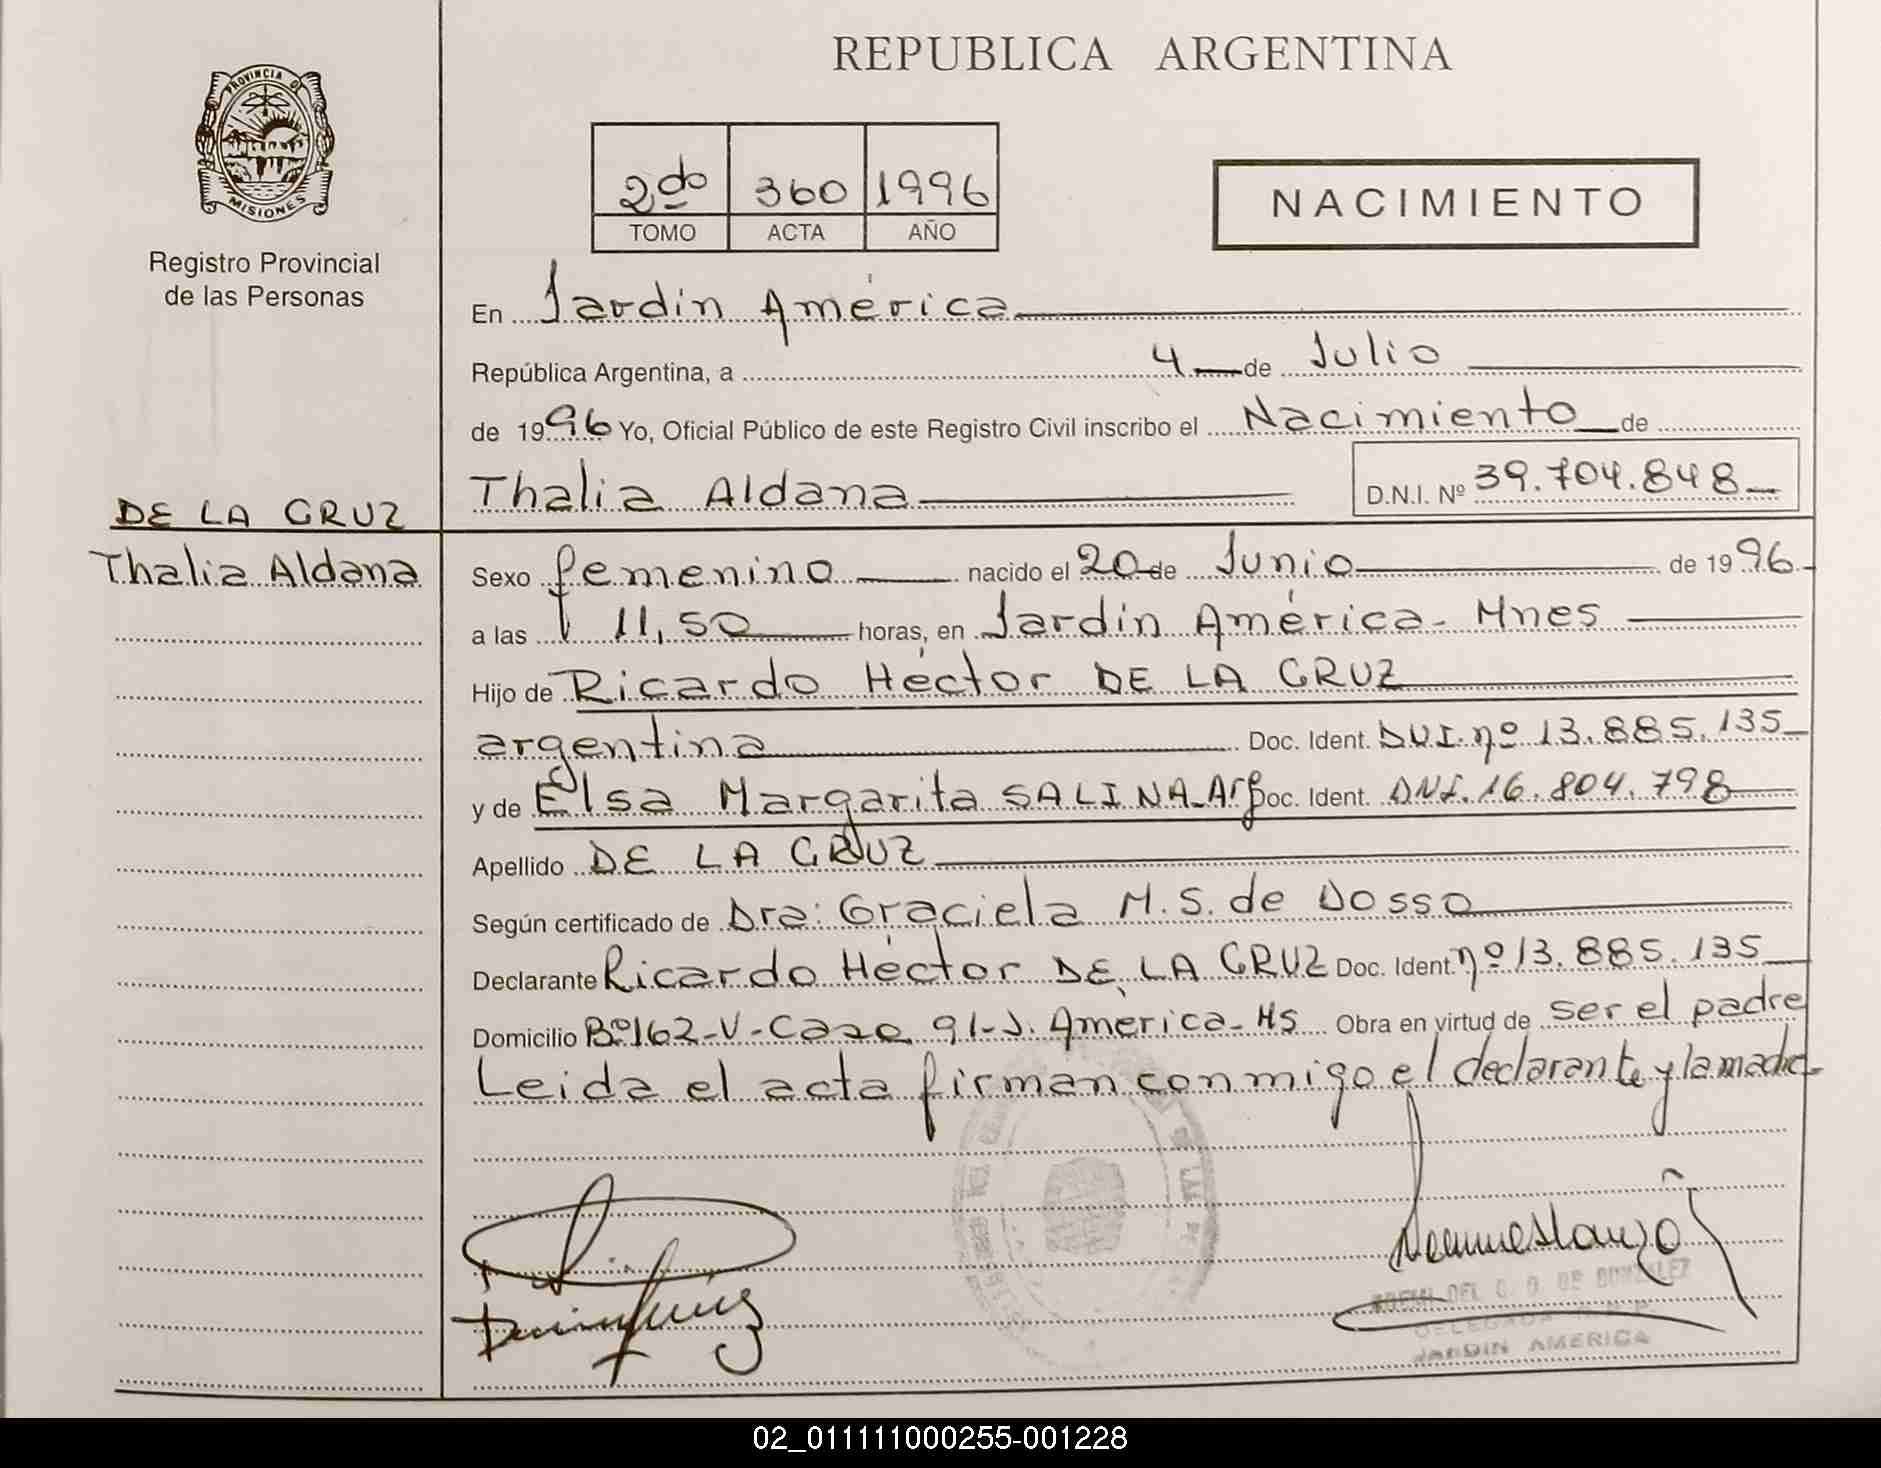 REPUBLICA ARGENTINA
PROVINCIA DE
MISIONES
Registro Provincial
de las Personas
2do 360 1996
TOMO ACTA AÑO
NACIMIENTO
En Jardín América
República Argentina, a 4 de Julio
de 1996 Yo, Oficial Público de este Registro Civil inscribo el Nacimiento de
Thalia Aldana D.N.I. Nº 39.704.848
DE LA CRUZ
Thalia Aldana
Sexo femenino nacido el 20 de Junio de 1996
a las 11,50 horas, en Jardín América - Mnes
Hijo de Ricardo Héctor DE LA CRUZ
argentina Doc. Ident. DNI. nº 13.885.135
y de Elsa Margarita SALINA - Arg Doc. Ident. DNI. 16.804.798
Apellido DE LA CRUZ
Según certificado de Dra: Graciela M.S. de Dosso
Declarante Ricardo Héctor DE LA CRUZ Doc. Ident. nº 13.885.135
Domicilio Bº 162-V-Casa 91-J. América - Ms Obra en virtud de ser el padre
Leida el acta firman conmigo el declarante y la madre
DE GONZALEZ
DELEGADA
JARDIN AMERICA
02_011111000255-001228